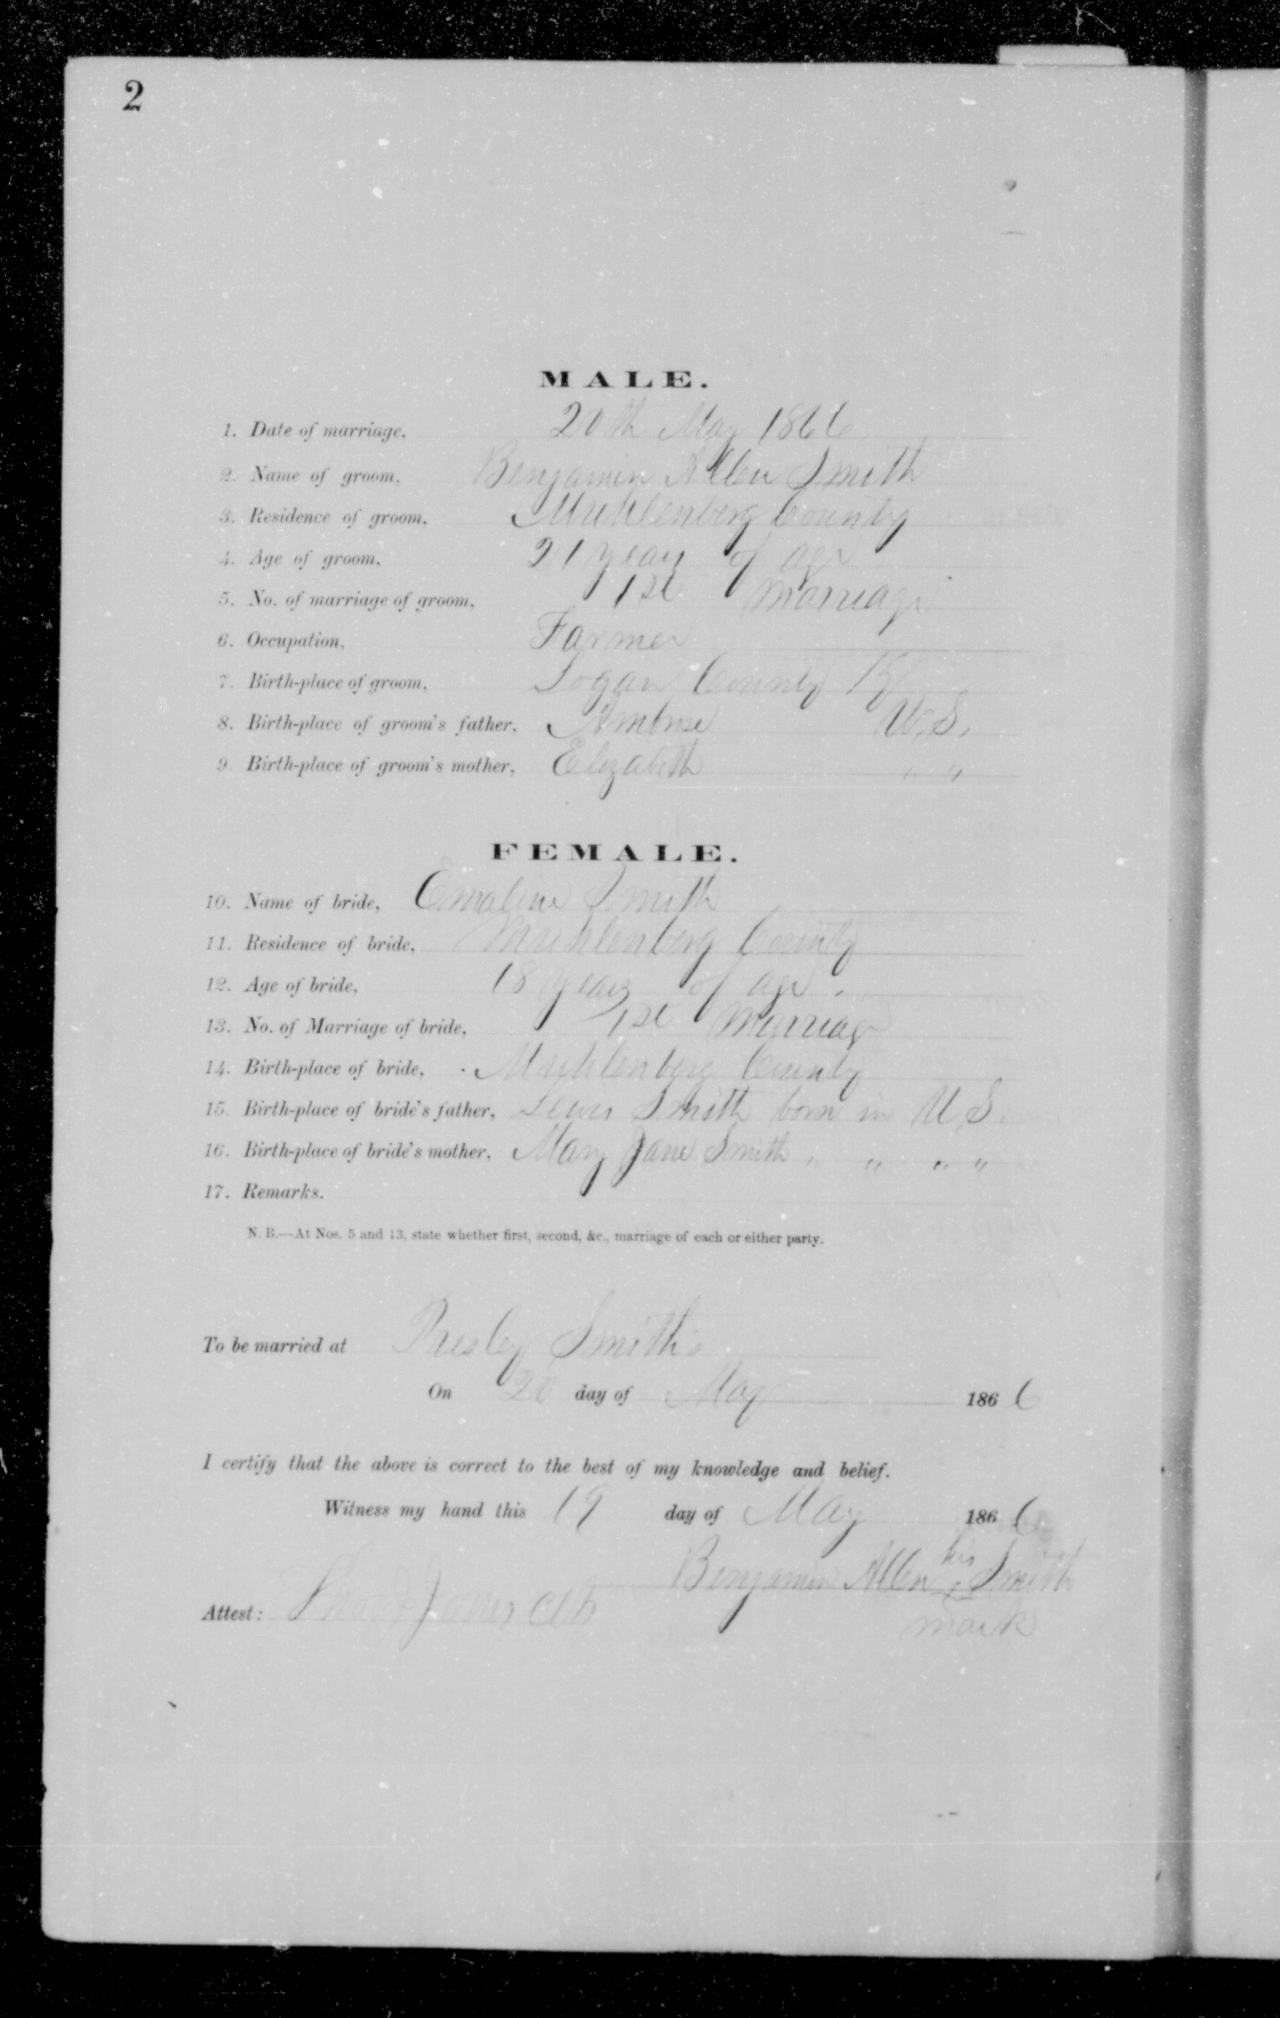 2
MALE.
1. Date of marriage, 20th May 1866
2. Name of groom, Benjamin Allen Smith
3. Residence of groom, Muhlenberg County
4. Age of groom, 21 years of age
5. No. of marriage of groom, 1st marriage
6. Occupation, Farmer
7. Birth-place of groom, Logan County Ky
8. Birth-place of groom's father, Ambrose U.S.
9. Birth-place of groom's mother, Elizabeth " "
FEMALE.
10. Name of bride, Emaline Smith
11. Residence of bride, Muhlenberg County
12. Age of bride, 18 years of age.
13. No. of Marriage of bride, 1st Marriage
14. Birth-place of bride, Muhlenberg County
15. Birth-place of bride's father, Lewis Smith born in U.S.
16. Birth-place of bride's mother, Mary Jane Smith " " " "
17. Remarks.
N. B.—At Nos. 5 and 13, state whether first, second, &c., marriage of each or either party.
To be married at Presley Smiths
On 20 day of May 1866
I certify that the above is correct to the best of my knowledge and belief.
Witness my hand this 19 day of May 1866
his
Benjamin Allen Smith
Attest: Jones Clk
mark